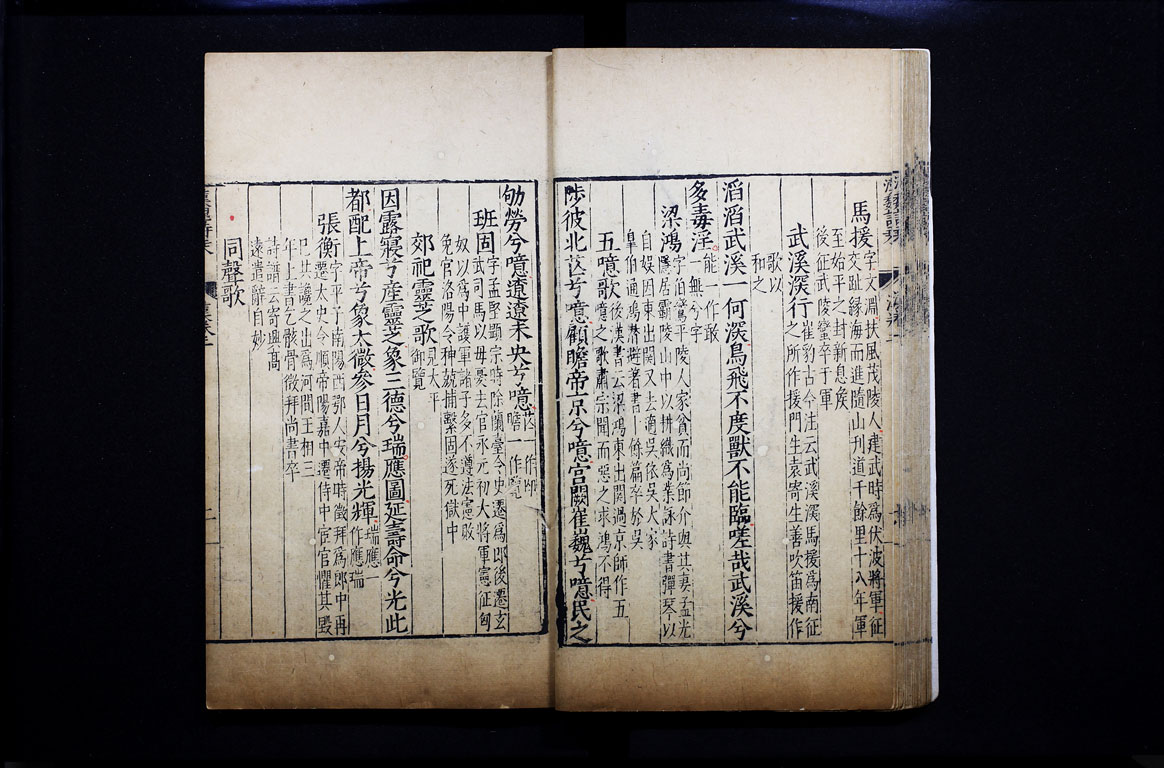 馬援字文淵扶風茂陵人建武時爲伏波將軍征
交趾緣海而進隨山刊道千餘里十八年軍
至始平之封新息矦
後征武陵蠻卒于軍
武溪深行崔豹古今注云武溪深馬援爲南征
之所作援門生袁寄生善吹笛援作
歌以
和之
滔滔武溪一何深鳥飛不度獸不能臨嗟哉武溪兮
多毒淫能一作敢
一無兮字
梁鴻字伯鸞平陵人家貧而尚節介與其妻孟光
隱居霸陵山中以耕織爲業詠詩書彈琴以
自娛因東出關又去適吳依吳大家
皐伯通鴻潛閉著書十餘篇卒於吳
五噫歌後漢書云梁鴻東出關過京師作五
噫之歌肅宗聞而惡之求鴻不得
陟彼北芒兮噫顧瞻帝京兮噫宮闕崔巍兮噫民之
劬勞兮噫遼遼未央兮噫芒一作邙
瞻一作覽
班固字孟堅顯宗時除蘭臺令史遷爲郎後遷玄
武司馬以母憂去官永元初大將軍憲征匈
奴以爲中護軍諸子多不遵法憲敗
免官洛陽令种兢捕繫固遂死獄中
郊祀靈芝歌見太平
御覽
因露寢兮產靈芝象三德兮瑞應圖延壽命兮光此
都配上帝兮象太微參日月兮揚光輝瑞應一
作應瑞
張衡字平子南陽西鄂人安帝時徵拜爲郎中再
遷太史令順帝陽嘉中遷侍中宦官懼其毀
巳共讒之出爲河間王相三
年上書乞骸骨徵拜尚書卒
詩譜云寄興高
遠遣辭自妙
同聲歌